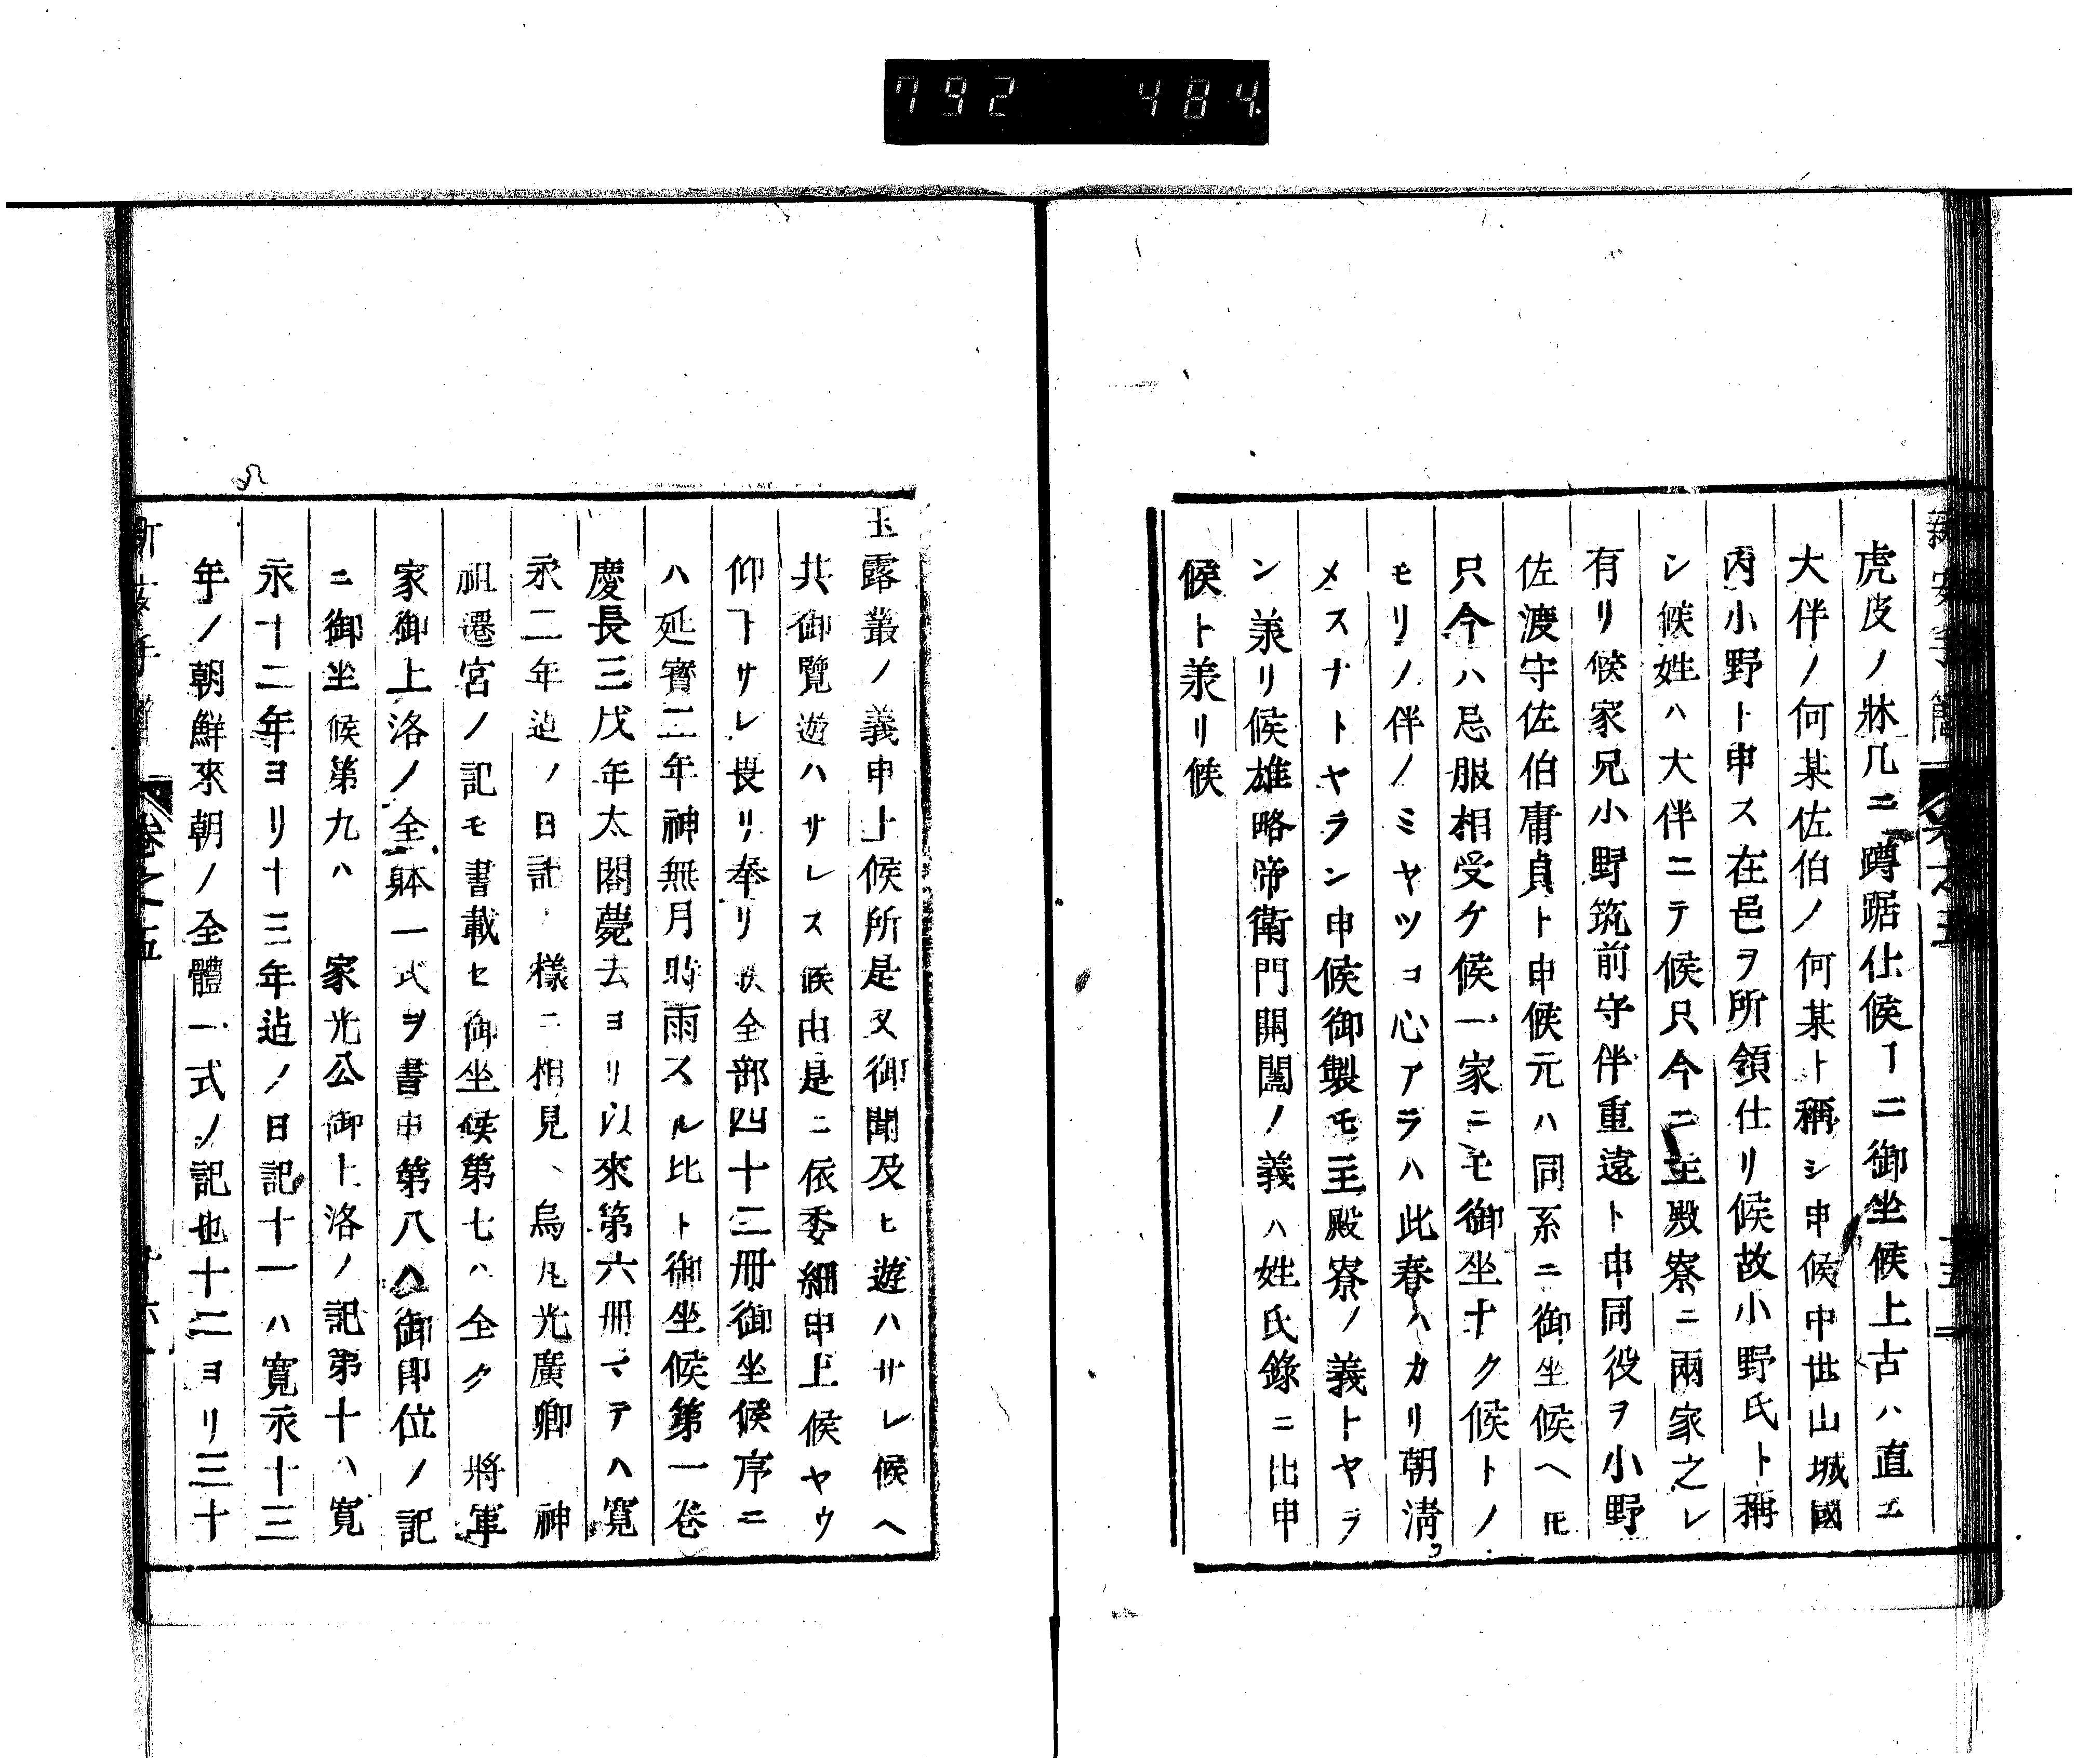 792 484
新安手簡 卷之五 十五
虎皮ノ牀几ニ蹲踞仕候ヿニ御坐候上古ハ直ニ
大伴ノ何某佐伯ノ何某ト稱シ申候中世山城國
内小野ト申ス在邑ヲ所領仕リ候故小野氏ト稱
シ候姓ハ大伴ニテ候只今ニ主殿寮ニ兩家之レ
有リ候家兄小野筑前守伴重遠ト申同役ヲ小野
佐渡守佐伯庸貞ト申候元ハ同系ニ御坐候ヘ𪜈
只今ハ忌服相受ケ候一家ニモ御坐ナク候トノ
モリノ伴ノミヤツコ心アラハ此春ハカリ朝淸
メスナトヤラン申候御製モ主殿寮ノ義トヤラ
ン羕リ候雄略帝衛門開闔ノ義ハ姓氏錄ニ出申
候ト羕リ候
玉露叢ノ義申上候所是又御聞及ヒ遊ハサレ候ヘ
共御覽遊ハサレス候由是ニ依委細申上候ヤウ
仰下サレ畏リ奉リ候全部四十二冊御坐候序ニ
ハ延寶二年神無月時雨スル比ト御坐候第一卷
慶長三戊年太閤薨去ヨリ以來第六冊マテハ寬
永二年迠ノ日記ノ樣ニ相見ヘ烏丸光廣卿 神
祖遷宮ノ記モ書載セ御坐候第七ハ全ク 將軍
家御上洛ノ全躰一式ヲ書申第八ハ御即位ノ記
ニ御坐候第九ハ 家光公御上洛ノ記第十ハ寬
永十二年ヨリ十三年迠ノ日記十一ハ寬永十三
年ノ朝鮮來朝ノ全體一式ノ記也十二ヨリ三十
新安手簡 卷之五 十六